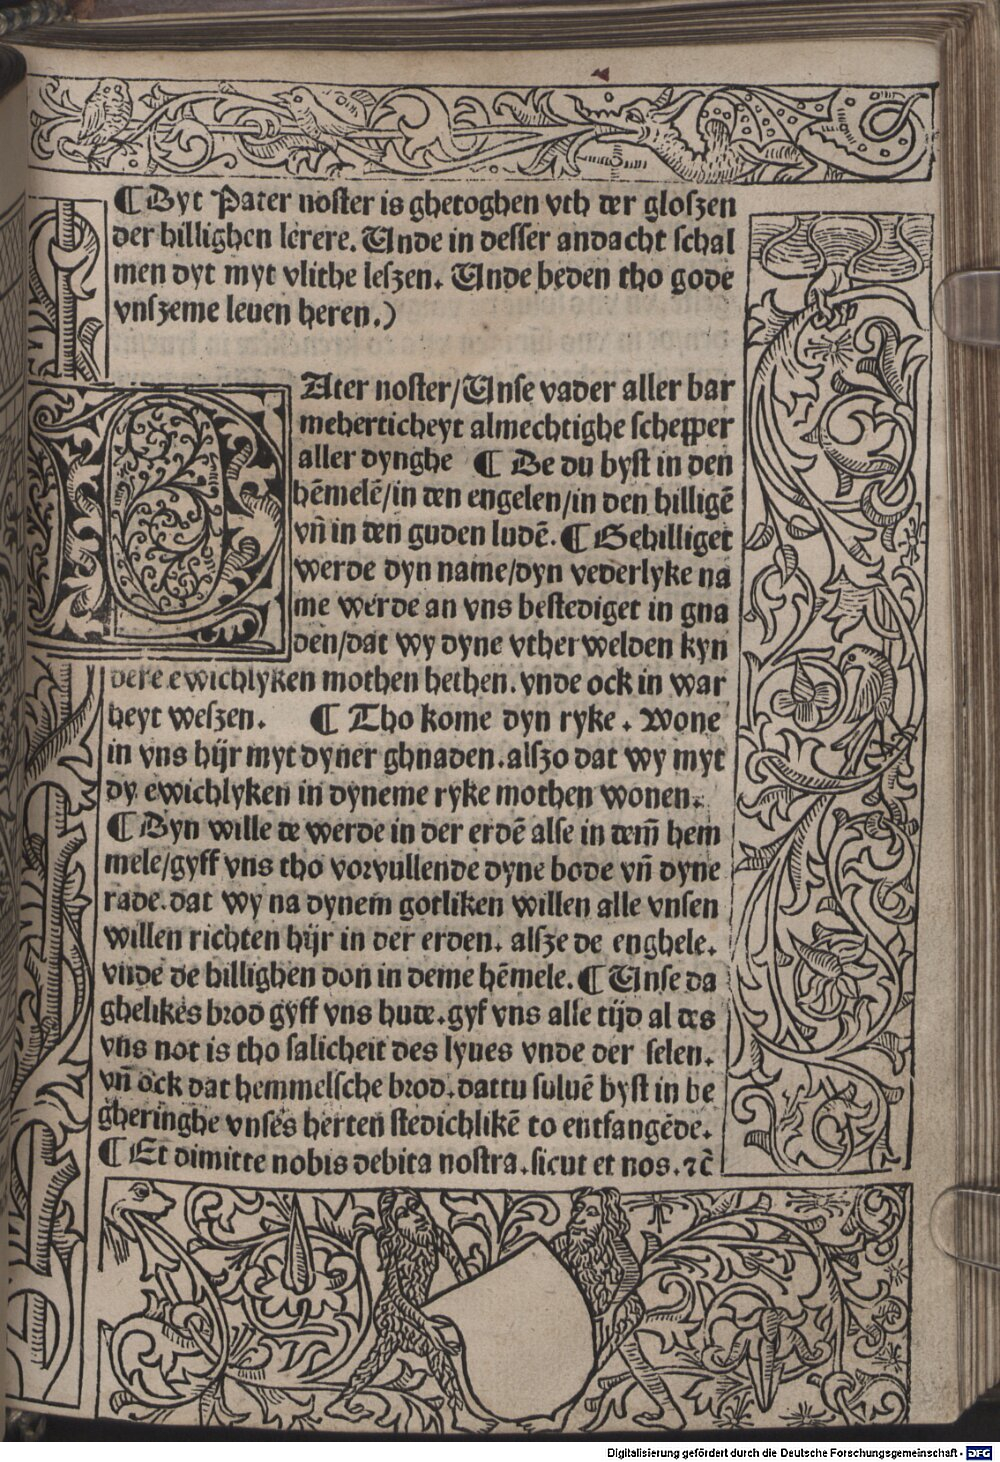 ¶ Dyt Pater noster is ghetoghen vth der gloszen
der hillighen lerere. Unde in desser andacht schal
men dyt myt vlithe leszen. Unde beden tho gode
vnszeme leuen heren.)
PAter noster/Unse vader aller bar
meherticheyt almechtighe schepper
aller dynghe ¶ De du byst in den
hēmelē/in den engelen/in den hilligē
vn̄ in den guden ludē. ¶ Gehilliget
werde dyn name/dyn vederlyke na
me werde an vns bestediget in gna
den/dat wy dyne vtherwelden kyn
dere ewichlyken mothen hethen. vnde ock in war
heyt weszen. ¶ Tho kome dyn ryke. Wone
in vns hijr myt dyner ghnaden. alszo dat wy myt
dy ewichlyken in dyneme ryke mothen wonen.
¶ Dyn wille de werde in der erdē alse in dem̄ hem
mele/gyff vns tho vorvullende dyne bode vn̄ dyne
rade. dat wy na dynem gotliken willen alle vnsen
willen richten hijr in der erden. alsze de enghele.
vnde de hillighen don in deme hēmele. ¶ Unse da
ghelikes brod gyff vns hude. gyf vns alle tijd al des
vns not is tho salicheit des lyues vnde der selen.
vn̄ ock dat hemmelsche brod. dattu suluē byst in be
gheringhe vnses herten stedichlikē to entfangēde.
¶ Et dimitte nobis debita nostra. sicut et nos. ⁊c̄
Digitalisierung gefördert durch die Deutsche Forschungsgemeinschaft - DFG